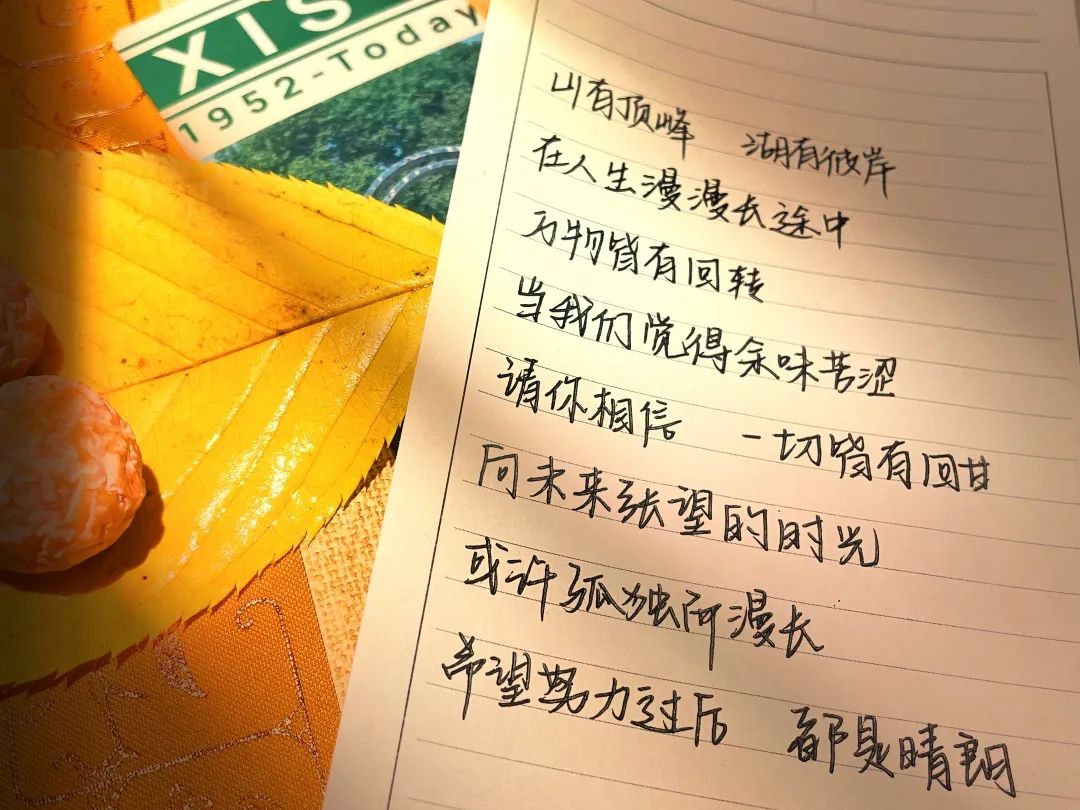 XIS
1952-Today
山有顶峰 湖有彼岸
在人生漫漫长途中
万物皆有回转
当我们觉得余味苦涩
请你相信 一切皆有回甘
向未来张望的时光
或许孤独而漫长
希望努力过后 都是晴朗